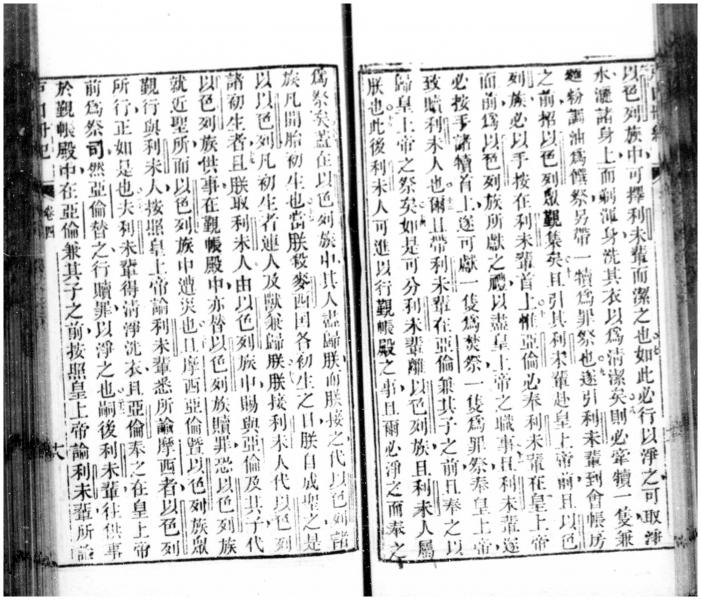 以色列族中可擇利未輩而潔之也如此必行以淨之可取淨
水灑諸身上而剃渾身洗其衣以爲清潔矣則必牽犢一隻兼
麵粉調油爲饌祭另帶一犢爲罪祭也遂引利未輩到會帳房
之前招以色列眾覲集矣且引其利未輩赴皇上帝前且以色
列族必以手按在利未輩首上惟亞倫必奉利未輩在皇上帝
而前爲以色列族所獻之禮以盡皇上帝之職事且利未輩遂
必按手諸犢首上遂可獻一隻爲焚祭一隻爲罪祭奉皇上帝
致贖利未人也爾且帶利未輩在亞倫兼其子之前且奉之以
歸皇上帝之祭矣如是可分利未輩離以色列族且利未人屬
朕也此後利未人可進以行覲帳殿之事且爾必淨之而奉之
爲祭矣蓋在以色列族中其人盡歸朕而朕接之代以色列諸
族凡開胎初生也當朕殺麥西國各初生之日朕自成聖之是
以以色列凡初生者連人及獸兼歸朕朕接利未人代以色列
諸初生者且朕取利未人由以色列族中賜與亞倫及其子代
以色列族供事在覲帳殿中亦替以色列族贖罪恐以色列族
就近聖所而以色列族中遭災也且摩西亞倫暨以色列族眾
覲行與利未人按照皇上帝諭利未輩悉所諭摩西者以色列
所行正如是也夫利未輩得清淨洗衣且亞倫奉之在皇上帝
前爲祭司然亞倫替之行贖罪以淨之也嗣後利未輩往供事
於覲帳殿中在亞倫兼其子之前按照皇上帝諭利未輩所諭
卷四